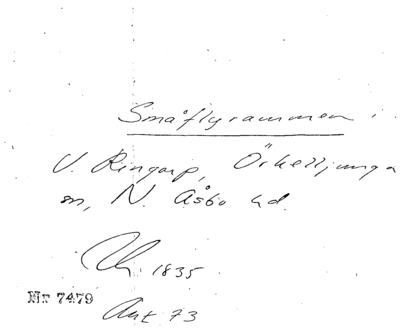 Småflyrammen i
V. Ringarp, Örkelljunga
sn, N. Åsbo hd.
1835
Nr 7479
Ant 73